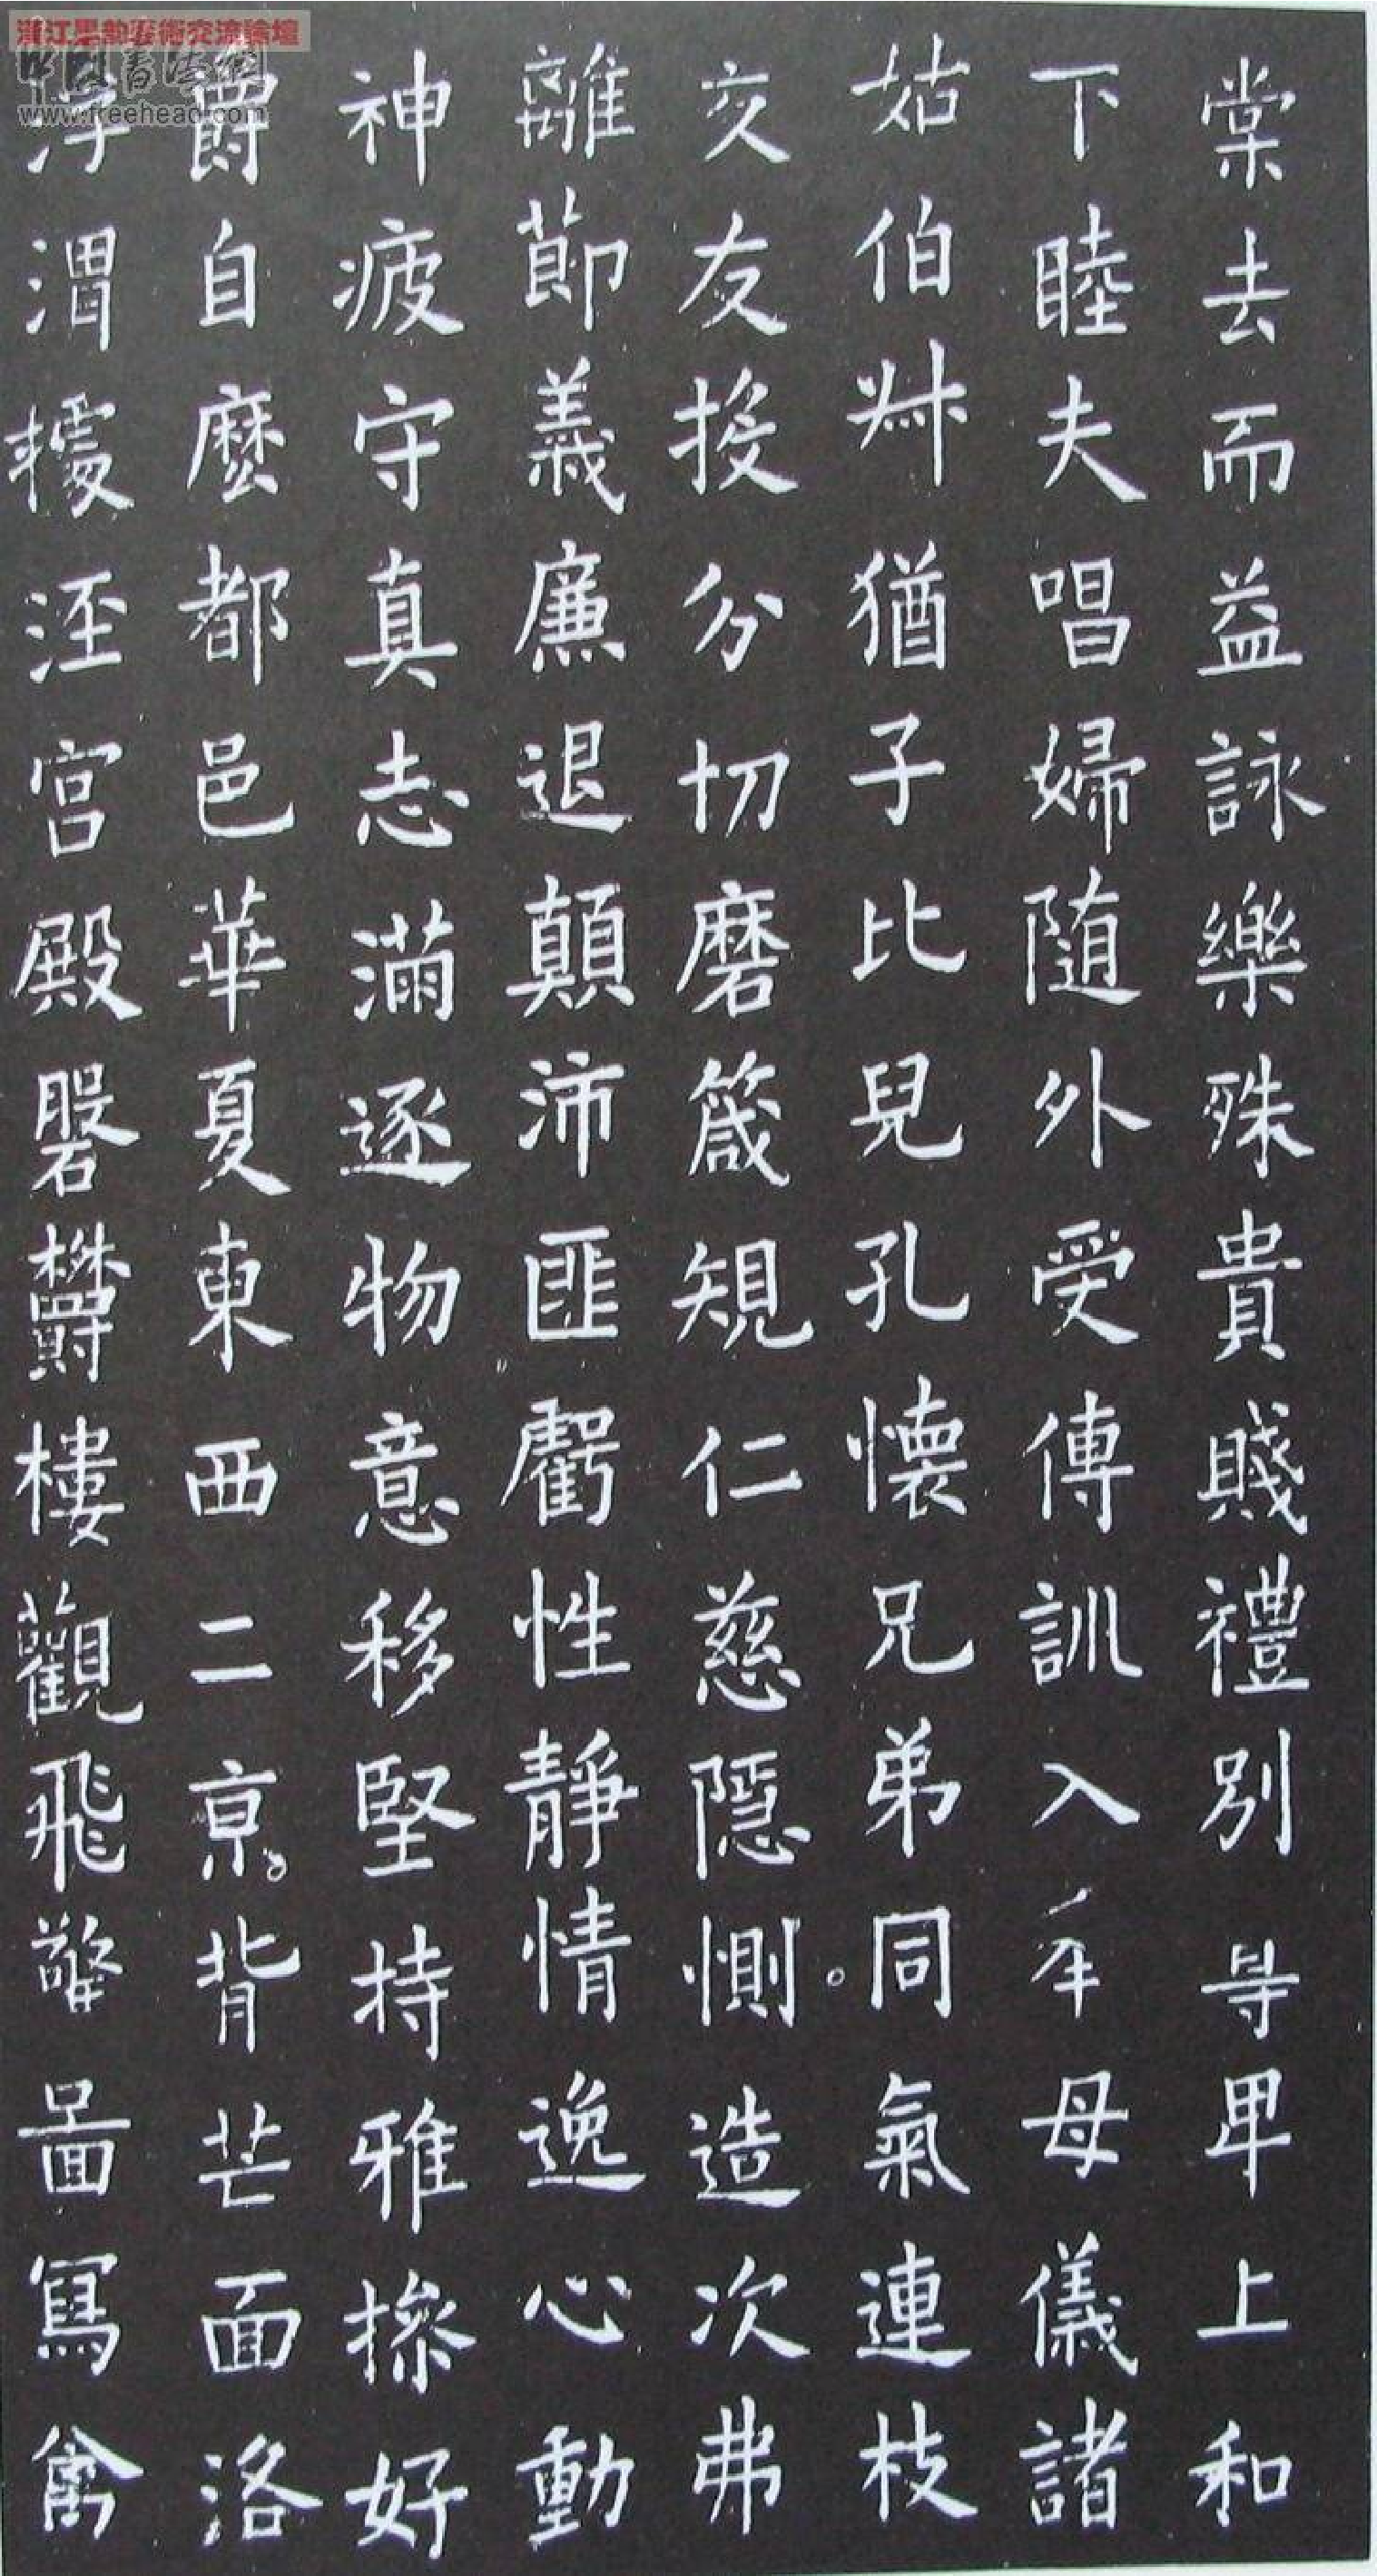 棠去而益詠樂殊貴賤禮別尊卑上和
下睦夫唱婦随外受傅訓入奉母儀諸
姑伯叔猶子比兒孔懷兄弟同氣連枝
交友投分切磨箴規仁慈隱惻造次弗
離節義廉退顛沛匪虧性靜情逸心動
神疲守真志滿逐物意移堅持雅操好
爵自縻都邑華夏東西二京背芒面洛
浮渭據涇宮殿磐欝樓觀飛驚啚寫禽
浙江墨韵藝術交流論壇
中国書法網
www.freehead.com